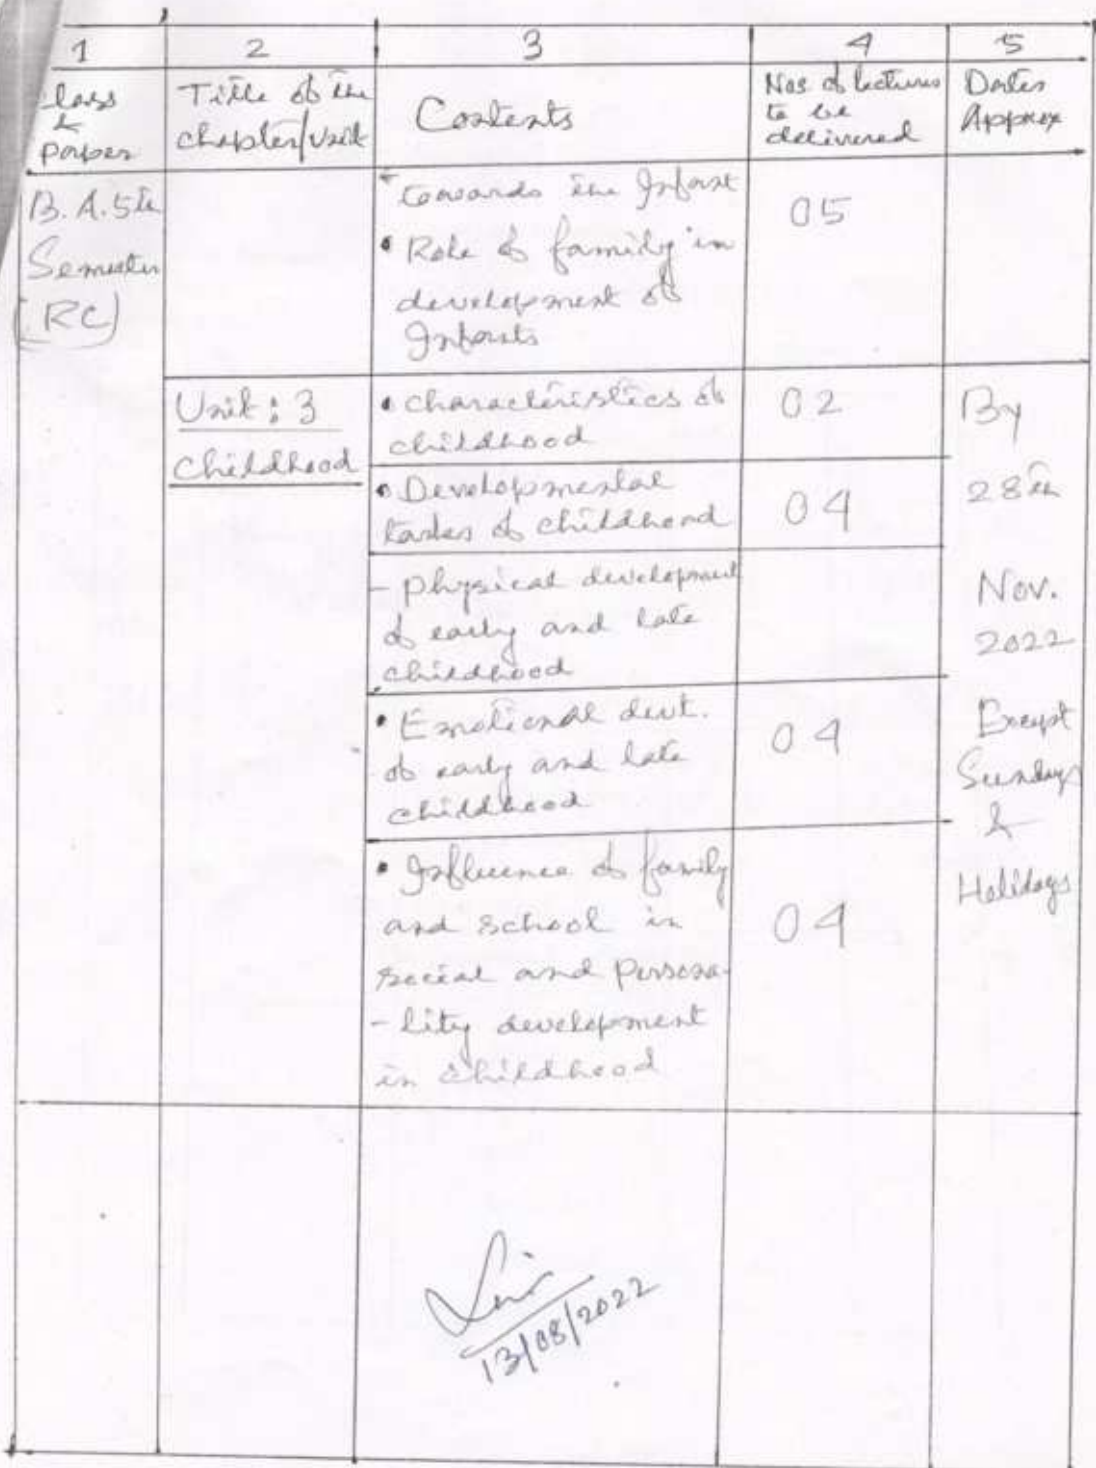 1 2 3 4 5
lass
&
paper
Title of the
chapter/Unit
Contents
Nos of lectures
to be
delivered
Dates
Approx
B.A. 5th
Semester
(RC)
towards the Infant
• Role of family in
development of
Infants
05
Unit: 3
Childhood
• characteristics of
childhood
02
• Developmental
tasks of childhood
04
- physical development
of early and late
childhood
• Emotional devt.
of early and late
childhood
04
• Influence of family
and school in
social and Persona-
- lity development
in childhood
04
By
28th
Nov.
2022
Except
Sundays
&
Holidays
13/08/2022